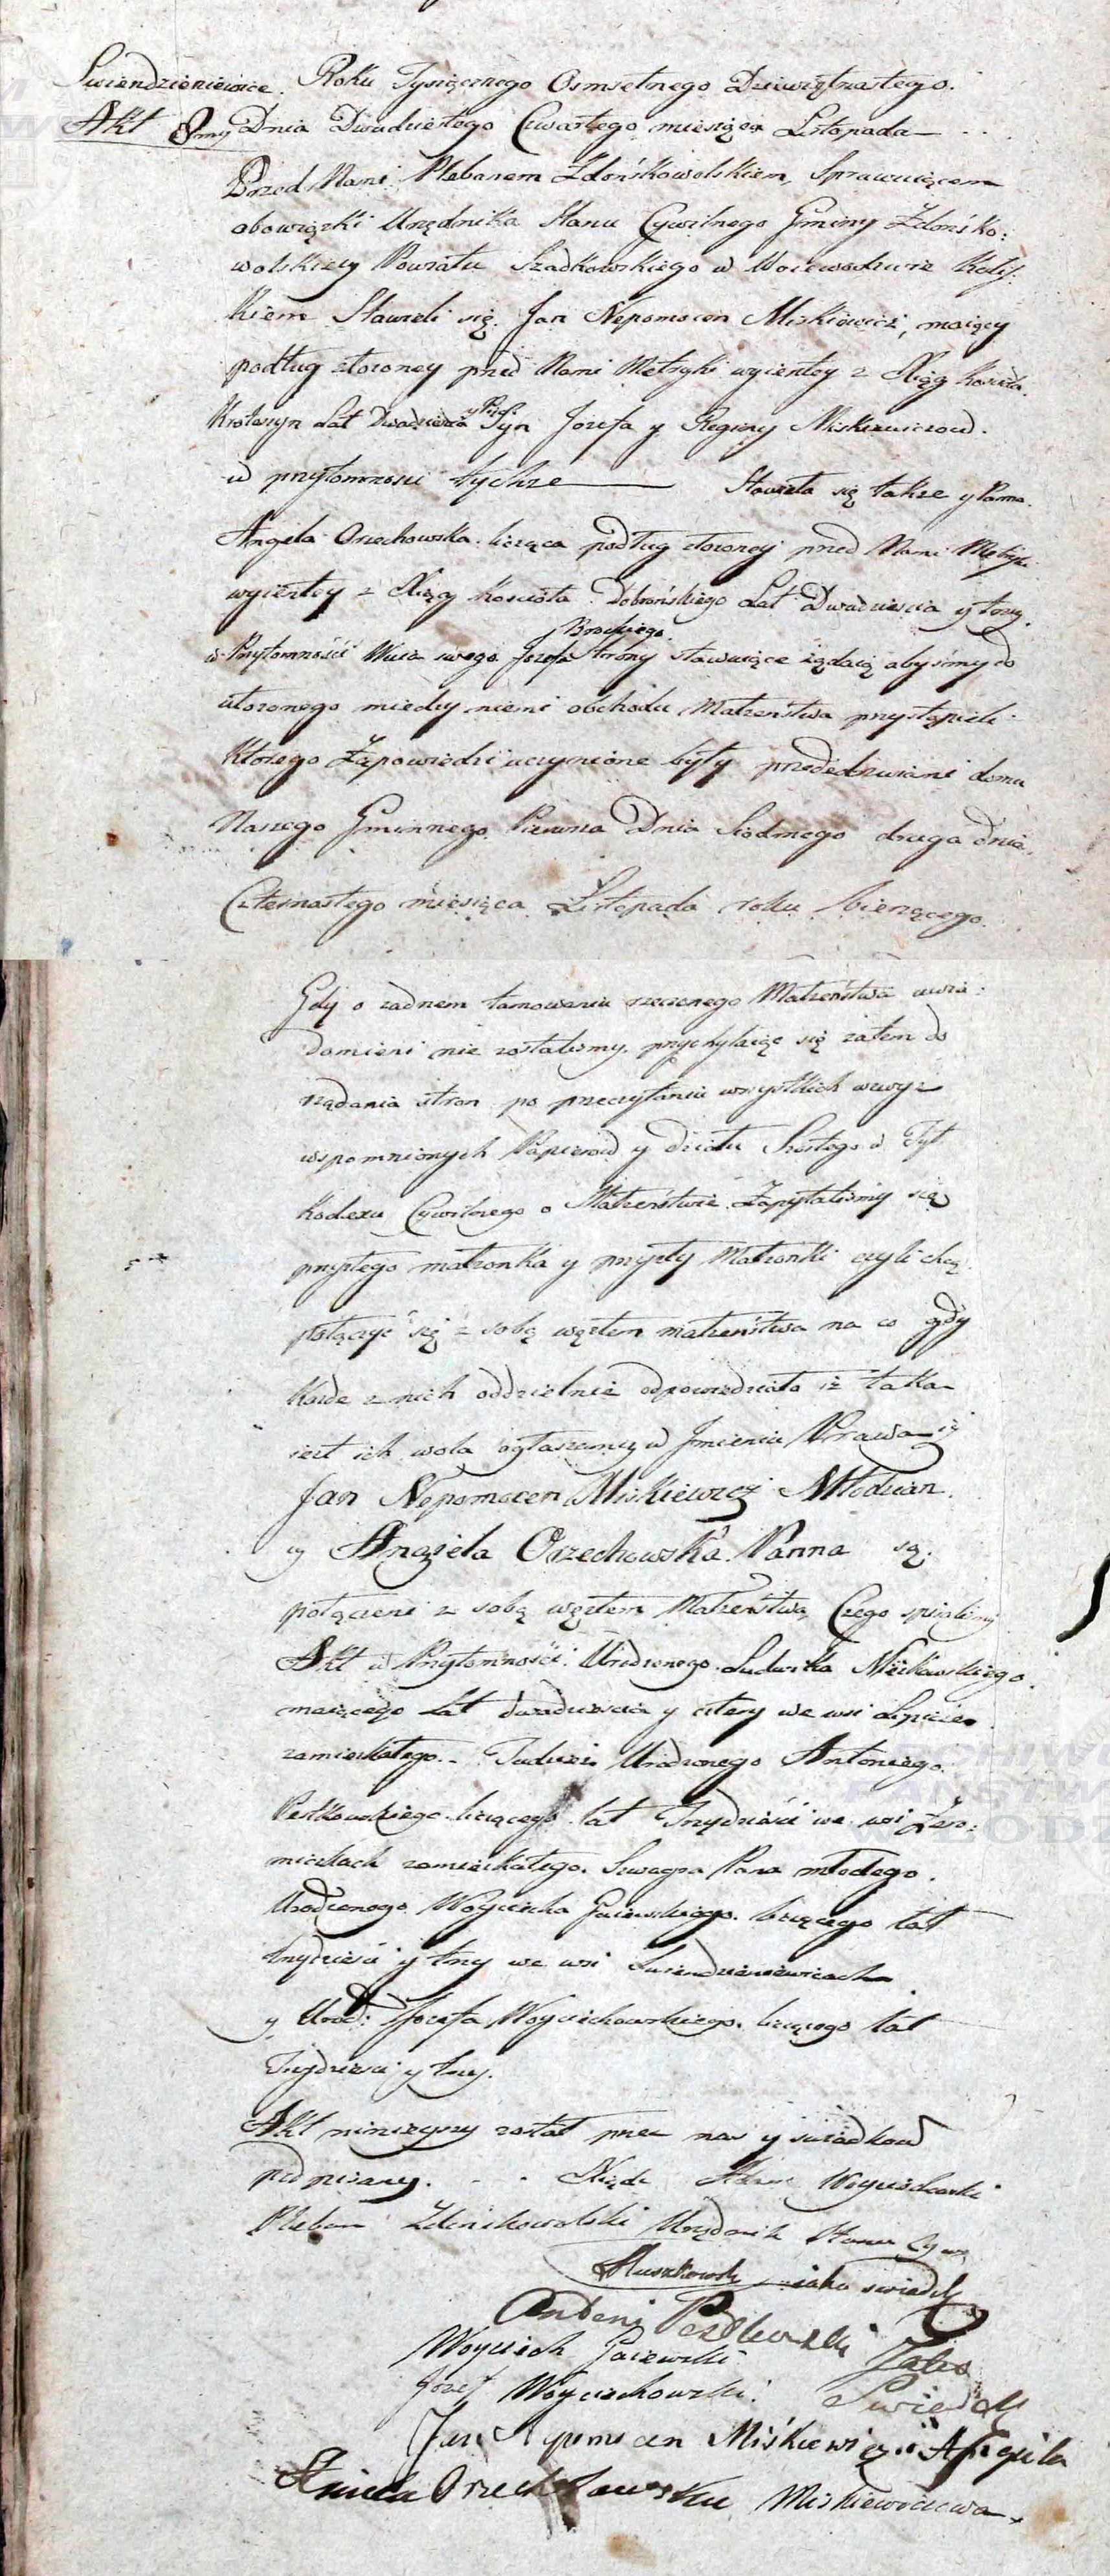 Swiendzieniewice. Roku Tysiącznego Osmsetnego Dziewiętnastego.
Akt 8my Dnia Dwudziestego Czwartego miesiąca Listopada
Przed Nami Plebanem Zdońskowolskiem, Sprawuiącem
obowiązki Urzędnika Stanu Cywilnego Gminy Zdońsko:
wolskiey Powiatu Szadkowskiego w Woiewodztwie Kalis:
kiem Stawili się Jan Nepomocen Miskiewicz, maiący
podług złożoney przed Nami Metryki wyientey z Xiąg Kościoła
Lat Dwadzieścia y Pięć Syn Jozefa y Reginy Miskiewiczow.
w przytomności tychże Stawiła się także y Panna
Angela Orzechowska licząca podług złożoney przed Nami Metryki
wyientey z Xiąg Kościoła Dobrońskiego Lat Dwadzieścia y trzy
w Przytomności Wuia swego Jozefa Strony stawaiące żądaią abysmy do
ułożonego miedzy niemi obchodu Małżeństwa przystąpili
ktorego Zapowiedzi uczynione były przededrzwiami domu
Naszego Gminnego Pierwsza Dnia Siodmego druga dnia
Czternastego miesiąca Listopada roku bierzącego.
Gdy o żadnem tamowaniu rzeczonego Małżeństwa uwia:
domieni nie zostalismy, przychylaiąc się zatem do
żądania stron po przeczytaniu wszystkich wwyż
wspomnionych Papierow y działu Szostego w Tyt
Kodexu Cywilnego o Małżeństwie Zapytalismy się
przyszłego małżonka y przyszły Małżonki czyli chcą
połączyć się z sobą węzłem małżeństwa na co gdy
każde z nich oddzielnie odpowiedziało iż taka
iest ich wola ogłaszamy w Jmieniu Prawa iż
Jan Nepomocen Miskiewicz Młodzian
y Angiela Orzechowska Panna są
połączeni z sobą węzłem Małżeństwa, Czego spisalismy
Akt w Przytomności Urodzonego Ludwika
maiącego Lat dwadzieścia y cztery we wsi
zamieszkałego. Tudzież Urodzonego Antoniego
liczącego lat Trzydzieści we wsi Żero:
miczkach zamieszkałego. Szwagra Pana młodego.
Urodzonego Woyciecha Gaiewskiego liczącego lat
trzydzieści y trzy we wsi Swiendzieniewicach
y Urod: Jozefa Woyciechowskiego liczącego lat
Trzydzieści y trzy.
Akt ninieyszy został przez nas y swiadkow
podpisany. Xiądz Woyciechowski
Pleban Zdońskowolski Urzędnik Stanu Cyw
iako swiadek
Antoni Jako
Woyciech Gaiewski Swiadek
Jozef Woyciechowski
Jan Nepomocen Miśkiewicz Angiela
Aniela Orzechowska Miskiewiczowa